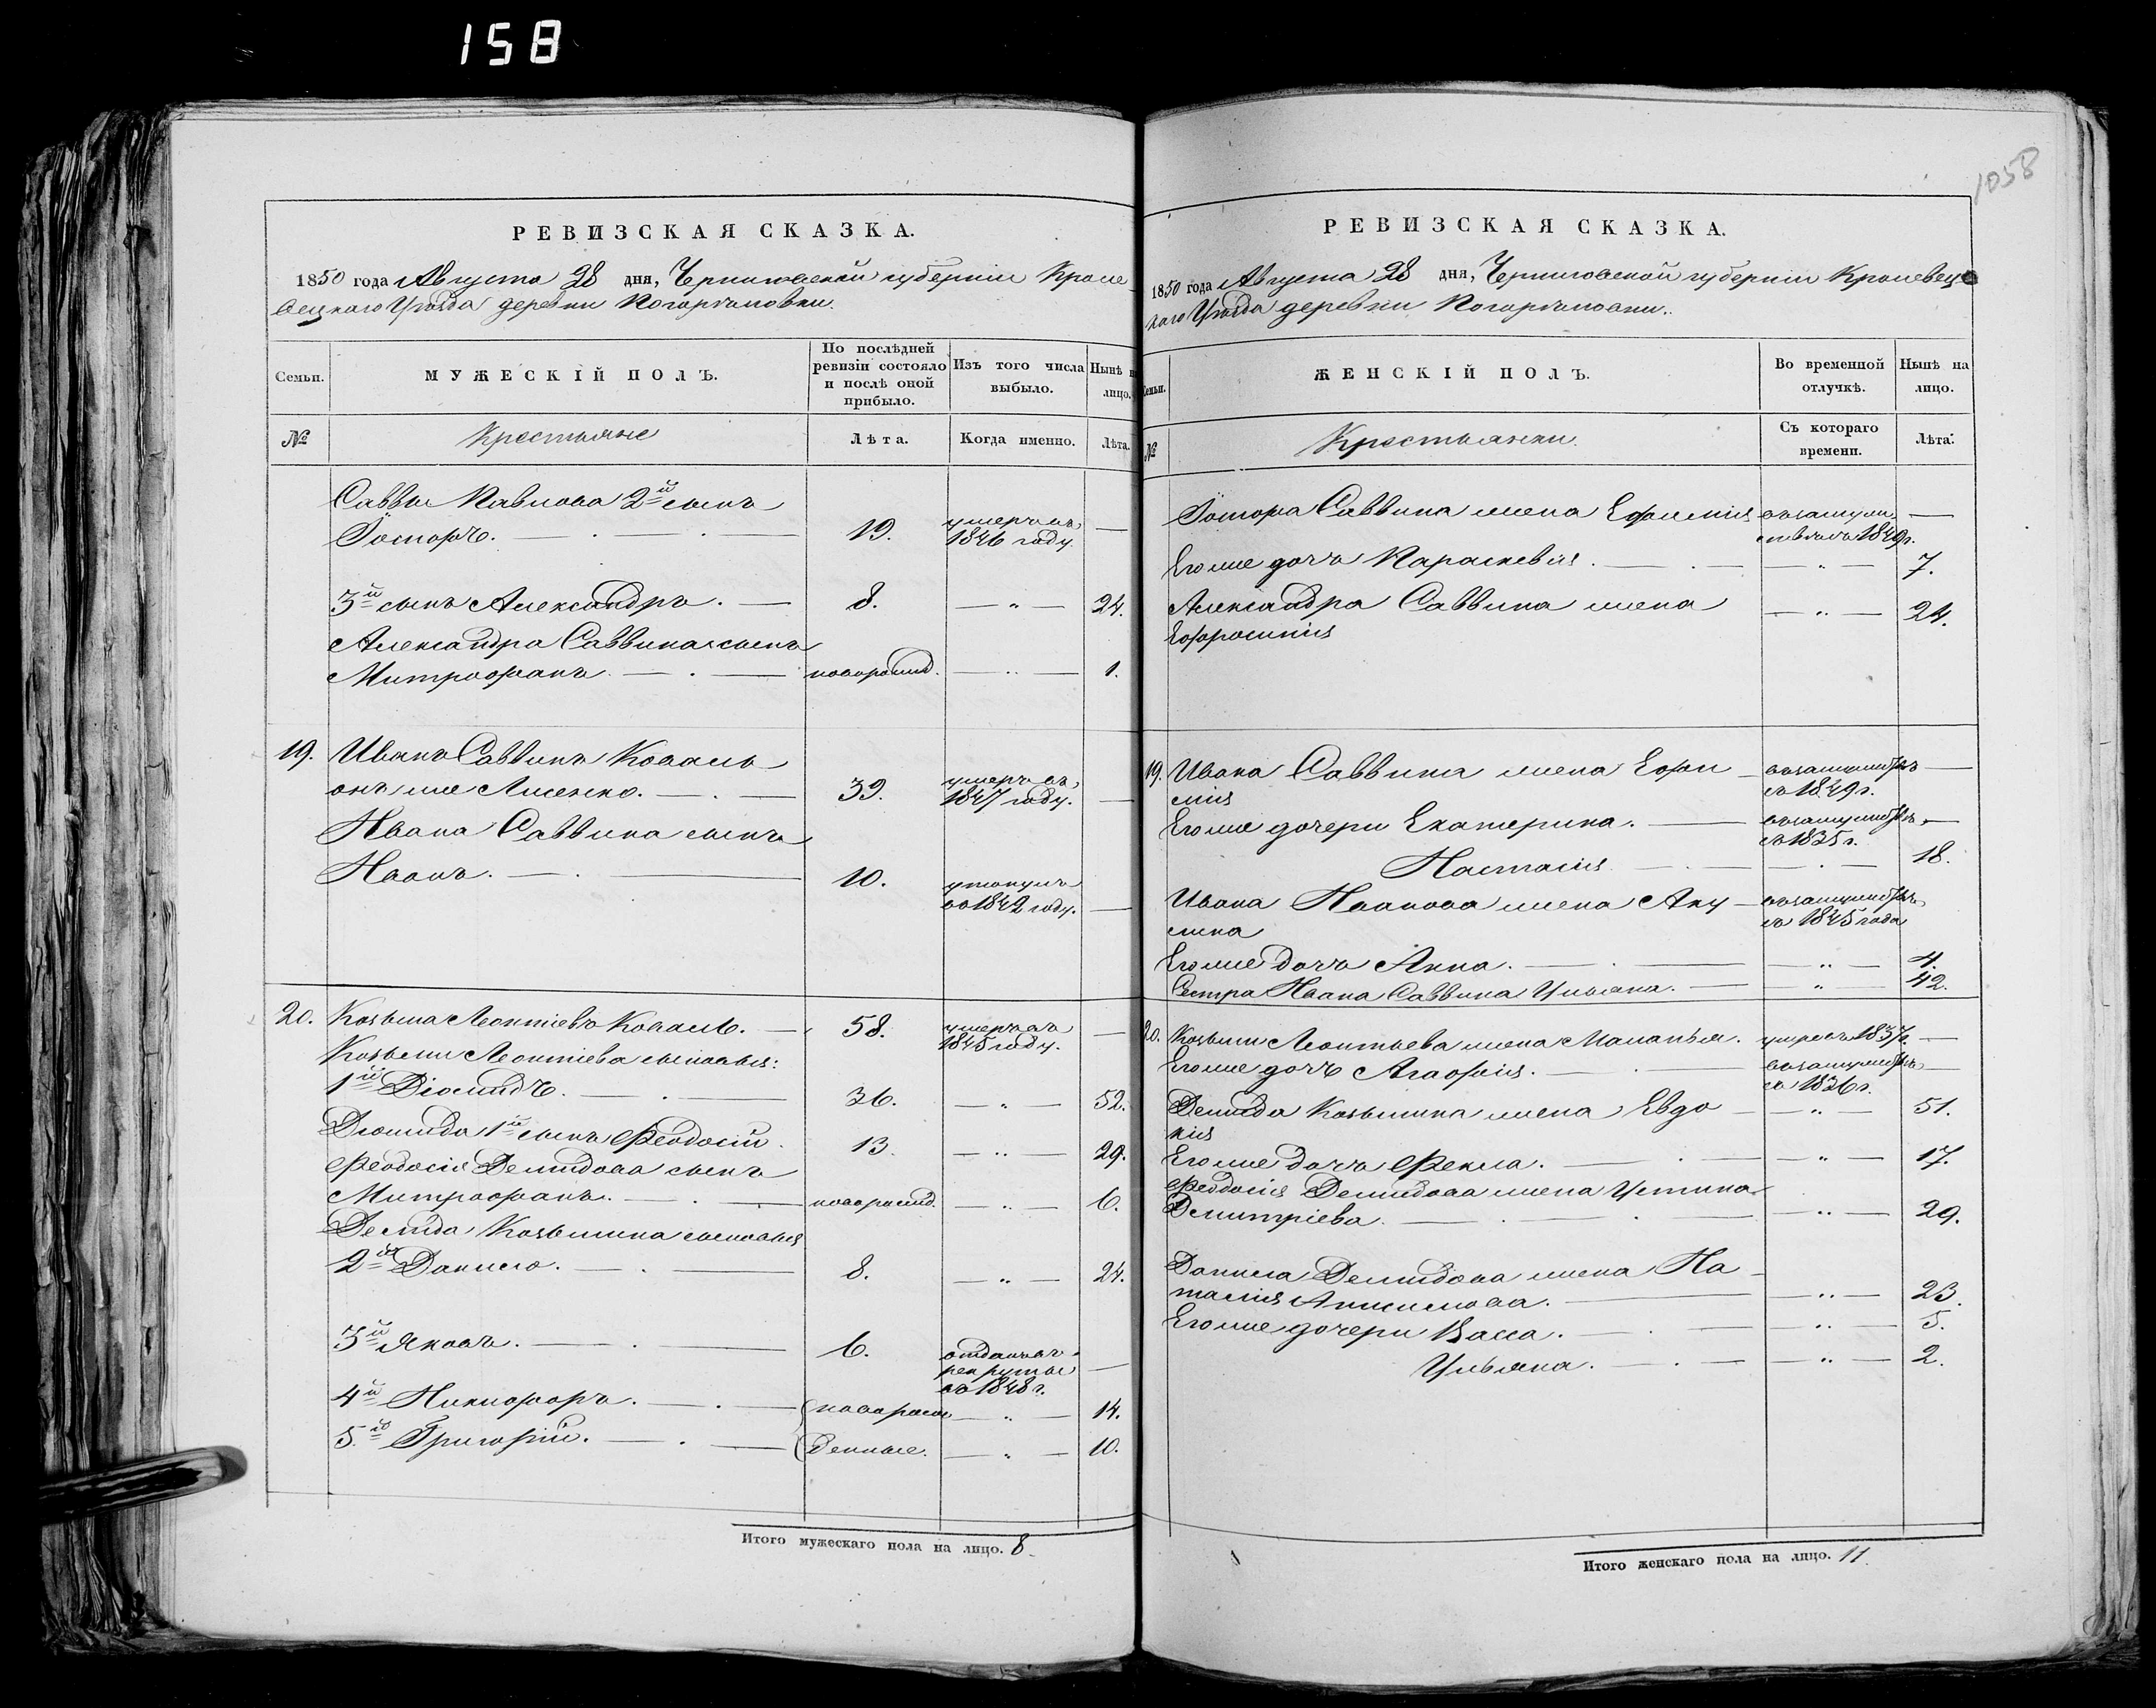 158
1058
РЕВИЗСКАЯ СКАЗКА.
1850 года Августа 28 дня, Черниговской губерніи Кроле-
вецкаго Уѣзда деревни Погорѣловки.
Семьи.
МУЖЕСКІЙ ПОЛЪ.
По послѣдней
ревизіи состояло
и послѣ оной
прибыло.
Изъ того числа
выбыло.
Нынѣ на
лицо.
№
Крестьяне
Лѣта.
Когда именно.
Лѣта.
Саввы Павлова 2й сынъ
19. умеръ въ —
1846 году.
3й сынъ Александръ. — 8. — „ — 24.
Александра Саввина сынъ
Митрофанъ. — новорожд. — „ — 1.
19. Иванъ Саввинъ Коваль
онъ же Лисенко. — 39. умеръ въ
1847 году. —
Ивана Саввина сынъ
Иванъ. — 10. утонулъ
въ 1842 году. —
20. Козьма Леонтіевъ Коваль. — 58. умеръ въ —
1845 году.
Козьмы Леонтіева сыновья:
1й Діомидъ. — 36. — „ — 52.
Діомида 1й сынъ Феодосій. 13. — „ — 29.
Феодосія Демидова сынъ
Митрофанъ. — новорожд. — „ — 6.
Демида Козьмина сыновья
2й Данило. — 8. — „ — 24.
3й Яковъ. — 6. отданъ въ
рекруты —
въ 1848 г.
4й Никифоръ. — новорож — „ — 14.
5й Григорій. — денные. — „ — 10.
Итого мужескаго пола на лицо. 8.
РЕВИЗСКАЯ СКАЗКА.
1850 года Августа 28 дня, Черниговской губерніи Кролевец-
каго Уѣзда деревни Погорѣловки.
Семьи.
ЖЕНСКІЙ ПОЛЪ.
Во временной
отлучкѣ.
Нынѣ на
лицо.
№
Крестьянки.
Съ котораго
времени.
Лѣта.
Саввина жена Ефимія —
1849 г.
Его же дочь Параскевія. — „ — 7.
Александра Саввина жена — „ — 24.
Ефросинія
19. Ивана Саввина жена Ефи- —
мія съ 1849 г.
Его же дочери Екатерина. — —
съ 1835 г.
Настасія — 18.
Ивана Иванова жена Аку-
лина съ 1845 года
Его же дочь Анна. — „ — 4.
Сестра Ивана Саввина Ульяна. — „ — 42.
20. Козьмы Леонтьева жена Маланья. 1837 г. —
Его же дочь Агафія. — —
съ 1836 г.
Демида Козьмина жена Евдо- — „ — 51.
кія
Его же дочь Фекла. — „ — 17.
Феодосія Демидова жена Устина
Дмитріева. — „ — 29.
Данила Демидова жена На-
талія Анисимова. — „ — 23.
Его же дочери Васса. — „ — 5.
Ульяна. — „ — 2.
Итого женскаго пола на лицо. 11.